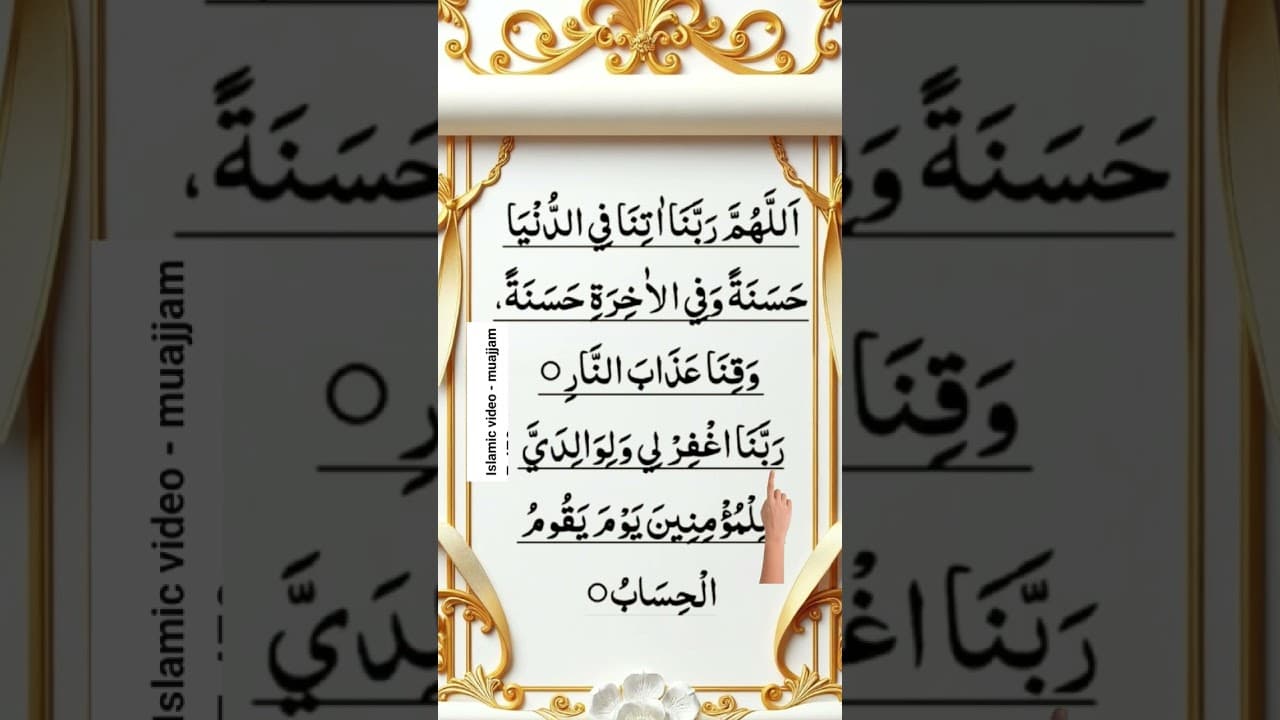 اَللَّهُمَّ رَبَّنَا اٰتِنَا فِي الدُّنْيَا
حَسَنَةً وَفِي الاٰخِرَةِ حَسَنَةً،
وَقِنَا عَذَابَ النَّارِ ○
رَبَّنَا اغْفِرْ لِي وَلِوَالِدَيَّ
يَوْمَ يَقُومُ
الْحِسَابُ ○
Islamic video - muajjam